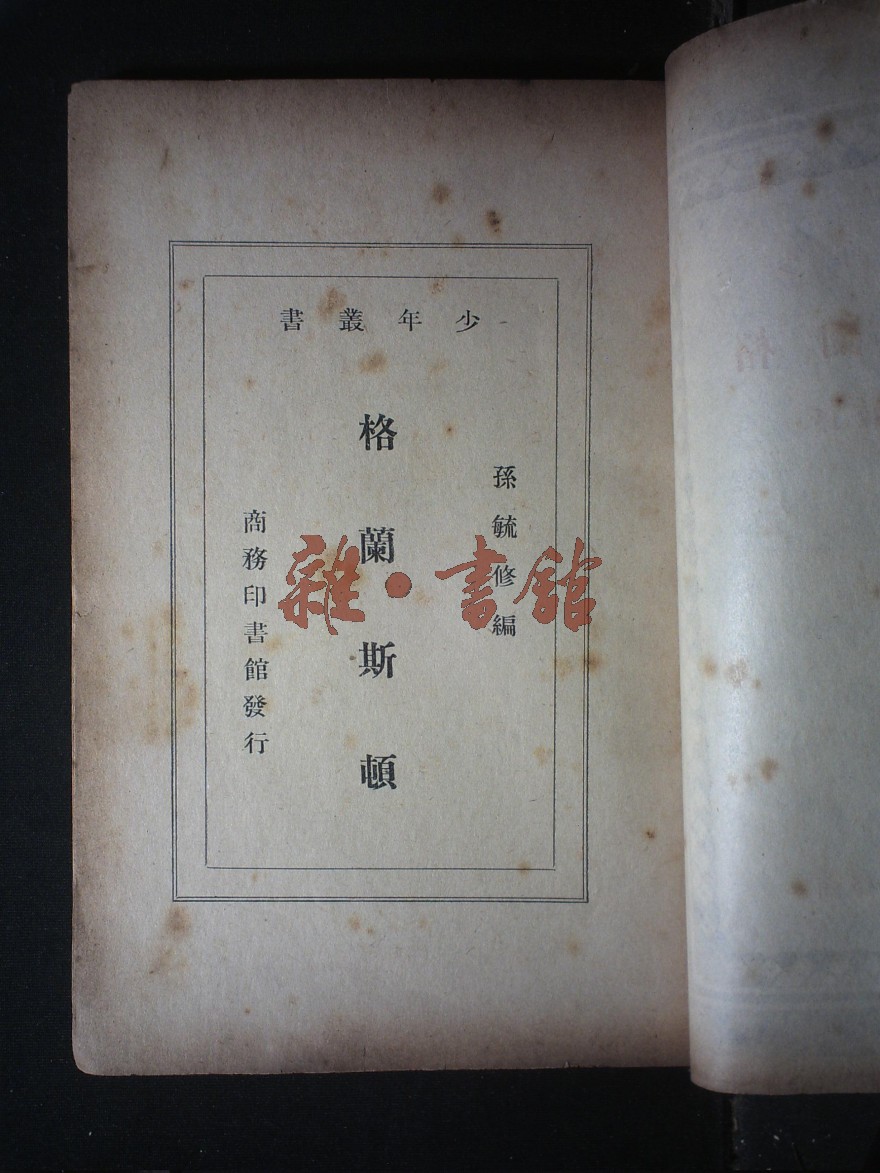 少年叢書
孫毓修編
格蘭斯頓
商務印書館發行
雜·書館